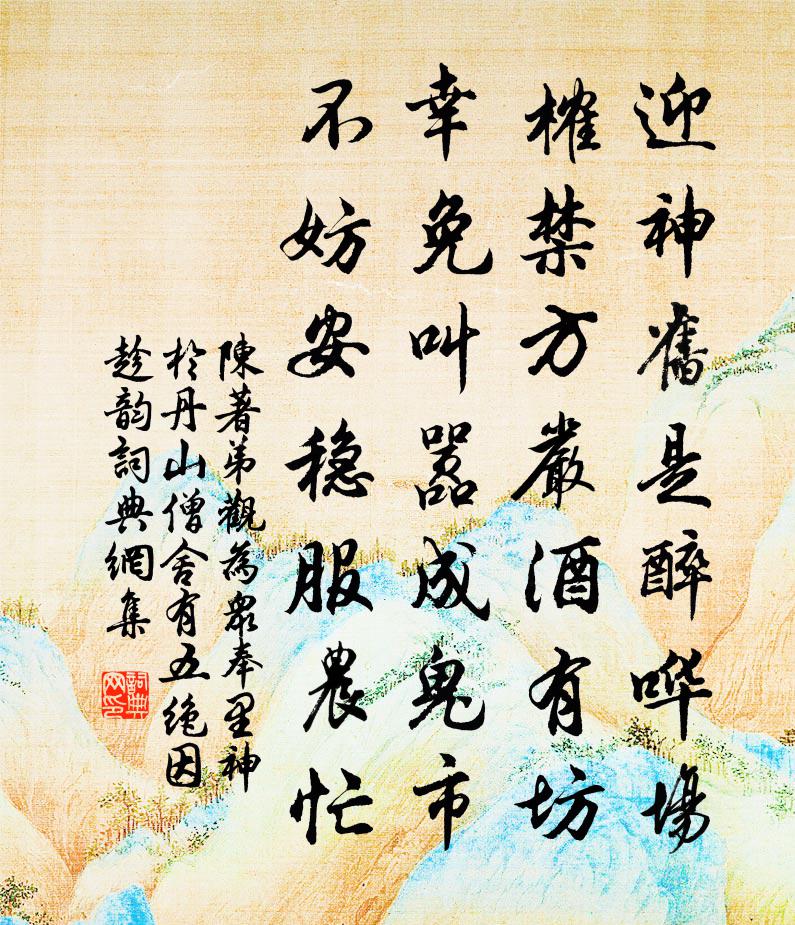 迎神舊是醉哗場
榷禁方嚴酒有坊
幸免叫嚣成鬼市
不妨安稳服農忙
陳著弟觀為眾奉里神
於丹山僧舍有五绝因
趁韵詞典網集
詞典
网印